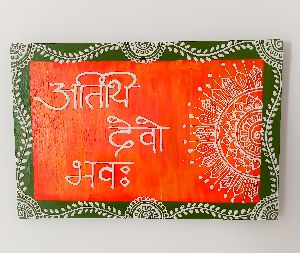 अतिथि
देवो
भवः